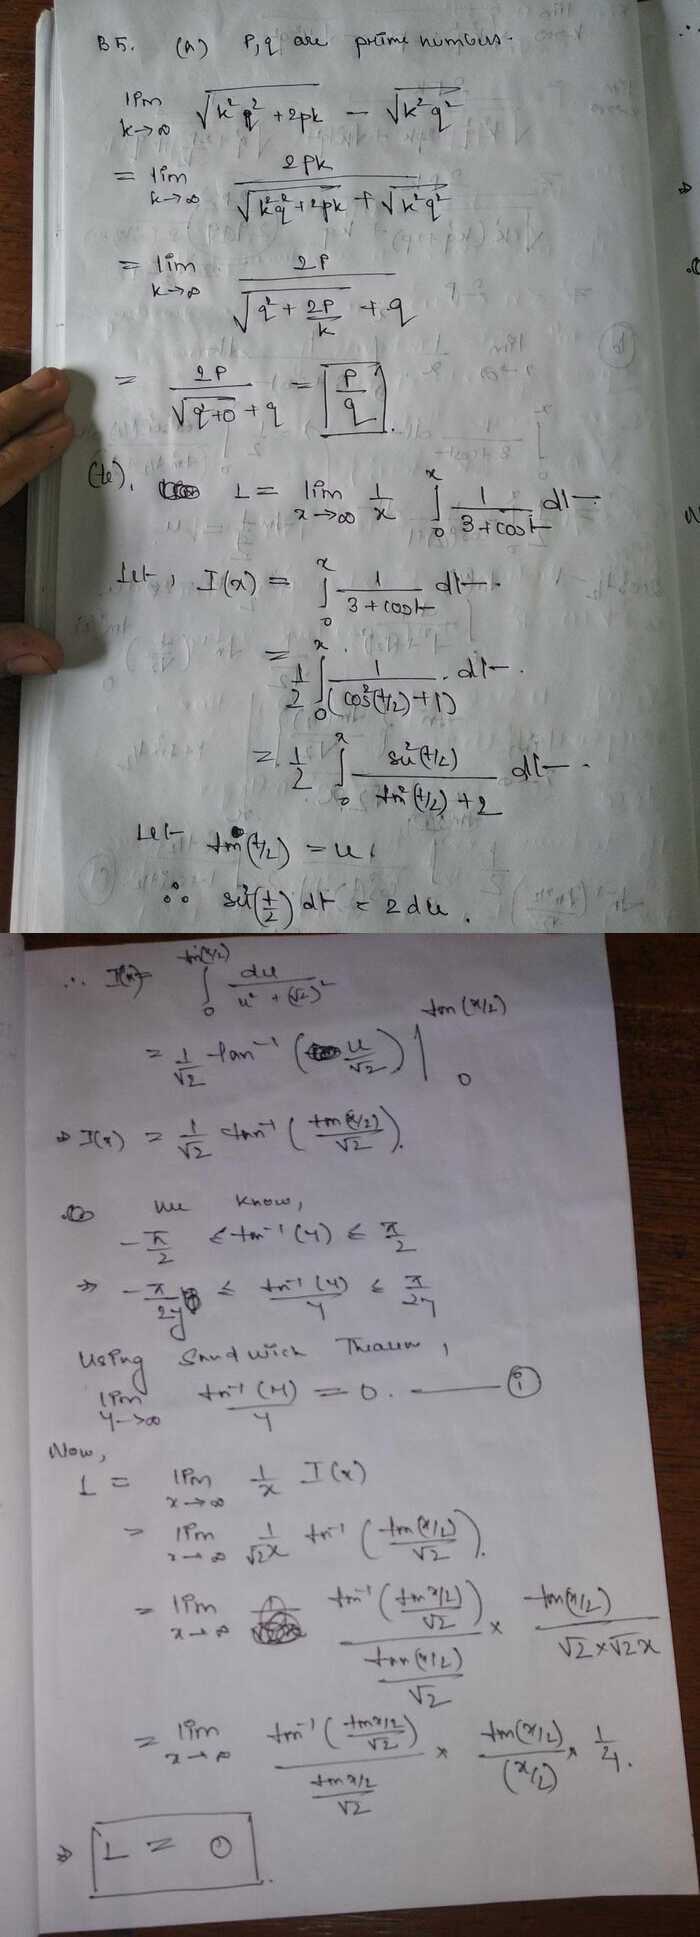 B5. (a) P, q are prime numbers.
lim k→∞ √(k²q² + 2pk) - √(k²q²)
= lim k→∞ 2pk / (√(k²q² + 2pk) + √(k²q²))
= lim k→∞ 2P / (√(q² + 2P/k) + q)
= 2P / (√(q²+0) + q) = P/q.
L = lim x→∞ 1/x ∫₀ˣ 1/(3+cost) dt
Let, I(x) = ∫₀ˣ 1/(3+cost) dt.
= 1/2 ∫₀ˣ 1/(cos²(t/2)+1) . dt.
= 1/2 ∫₀ˣ sec²(t/2) / (tan²(t/2) + 2) dt.
Let tan(t/2) = u.
∴ sec²(t/2) dt = 2du.
∴ I(x) = ∫₀^tan(x/2) du / (u² + (√2)²)
= 1/√2 tan⁻¹(u/√2) |₀^tan(x/2)
⇒ I(x) = 1/√2 tan⁻¹(tan(x/2)/√2).
We know,
-π/2 ≤ tan⁻¹(y) ≤ π/2
⇒ -π/2y ≤ tan⁻¹(y)/y ≤ π/2y
Using Sandwich Theorem,
lim y→∞ tan⁻¹(y)/y = 0. —— (i)
Now,
L = lim x→∞ 1/x I(x)
= lim x→∞ 1/√2x tan⁻¹(tan(x/2)/√2).
= lim x→∞ tan⁻¹(tan x/2/√2) / (tan(x/2)/√2) × tan(x/2)/(√2×√2x)
= lim x→∞ tan⁻¹(tan x/2/√2) / (tan x/2/√2) × tan(x/2)/(x/2) × 1/4.
⇒ L = 0.